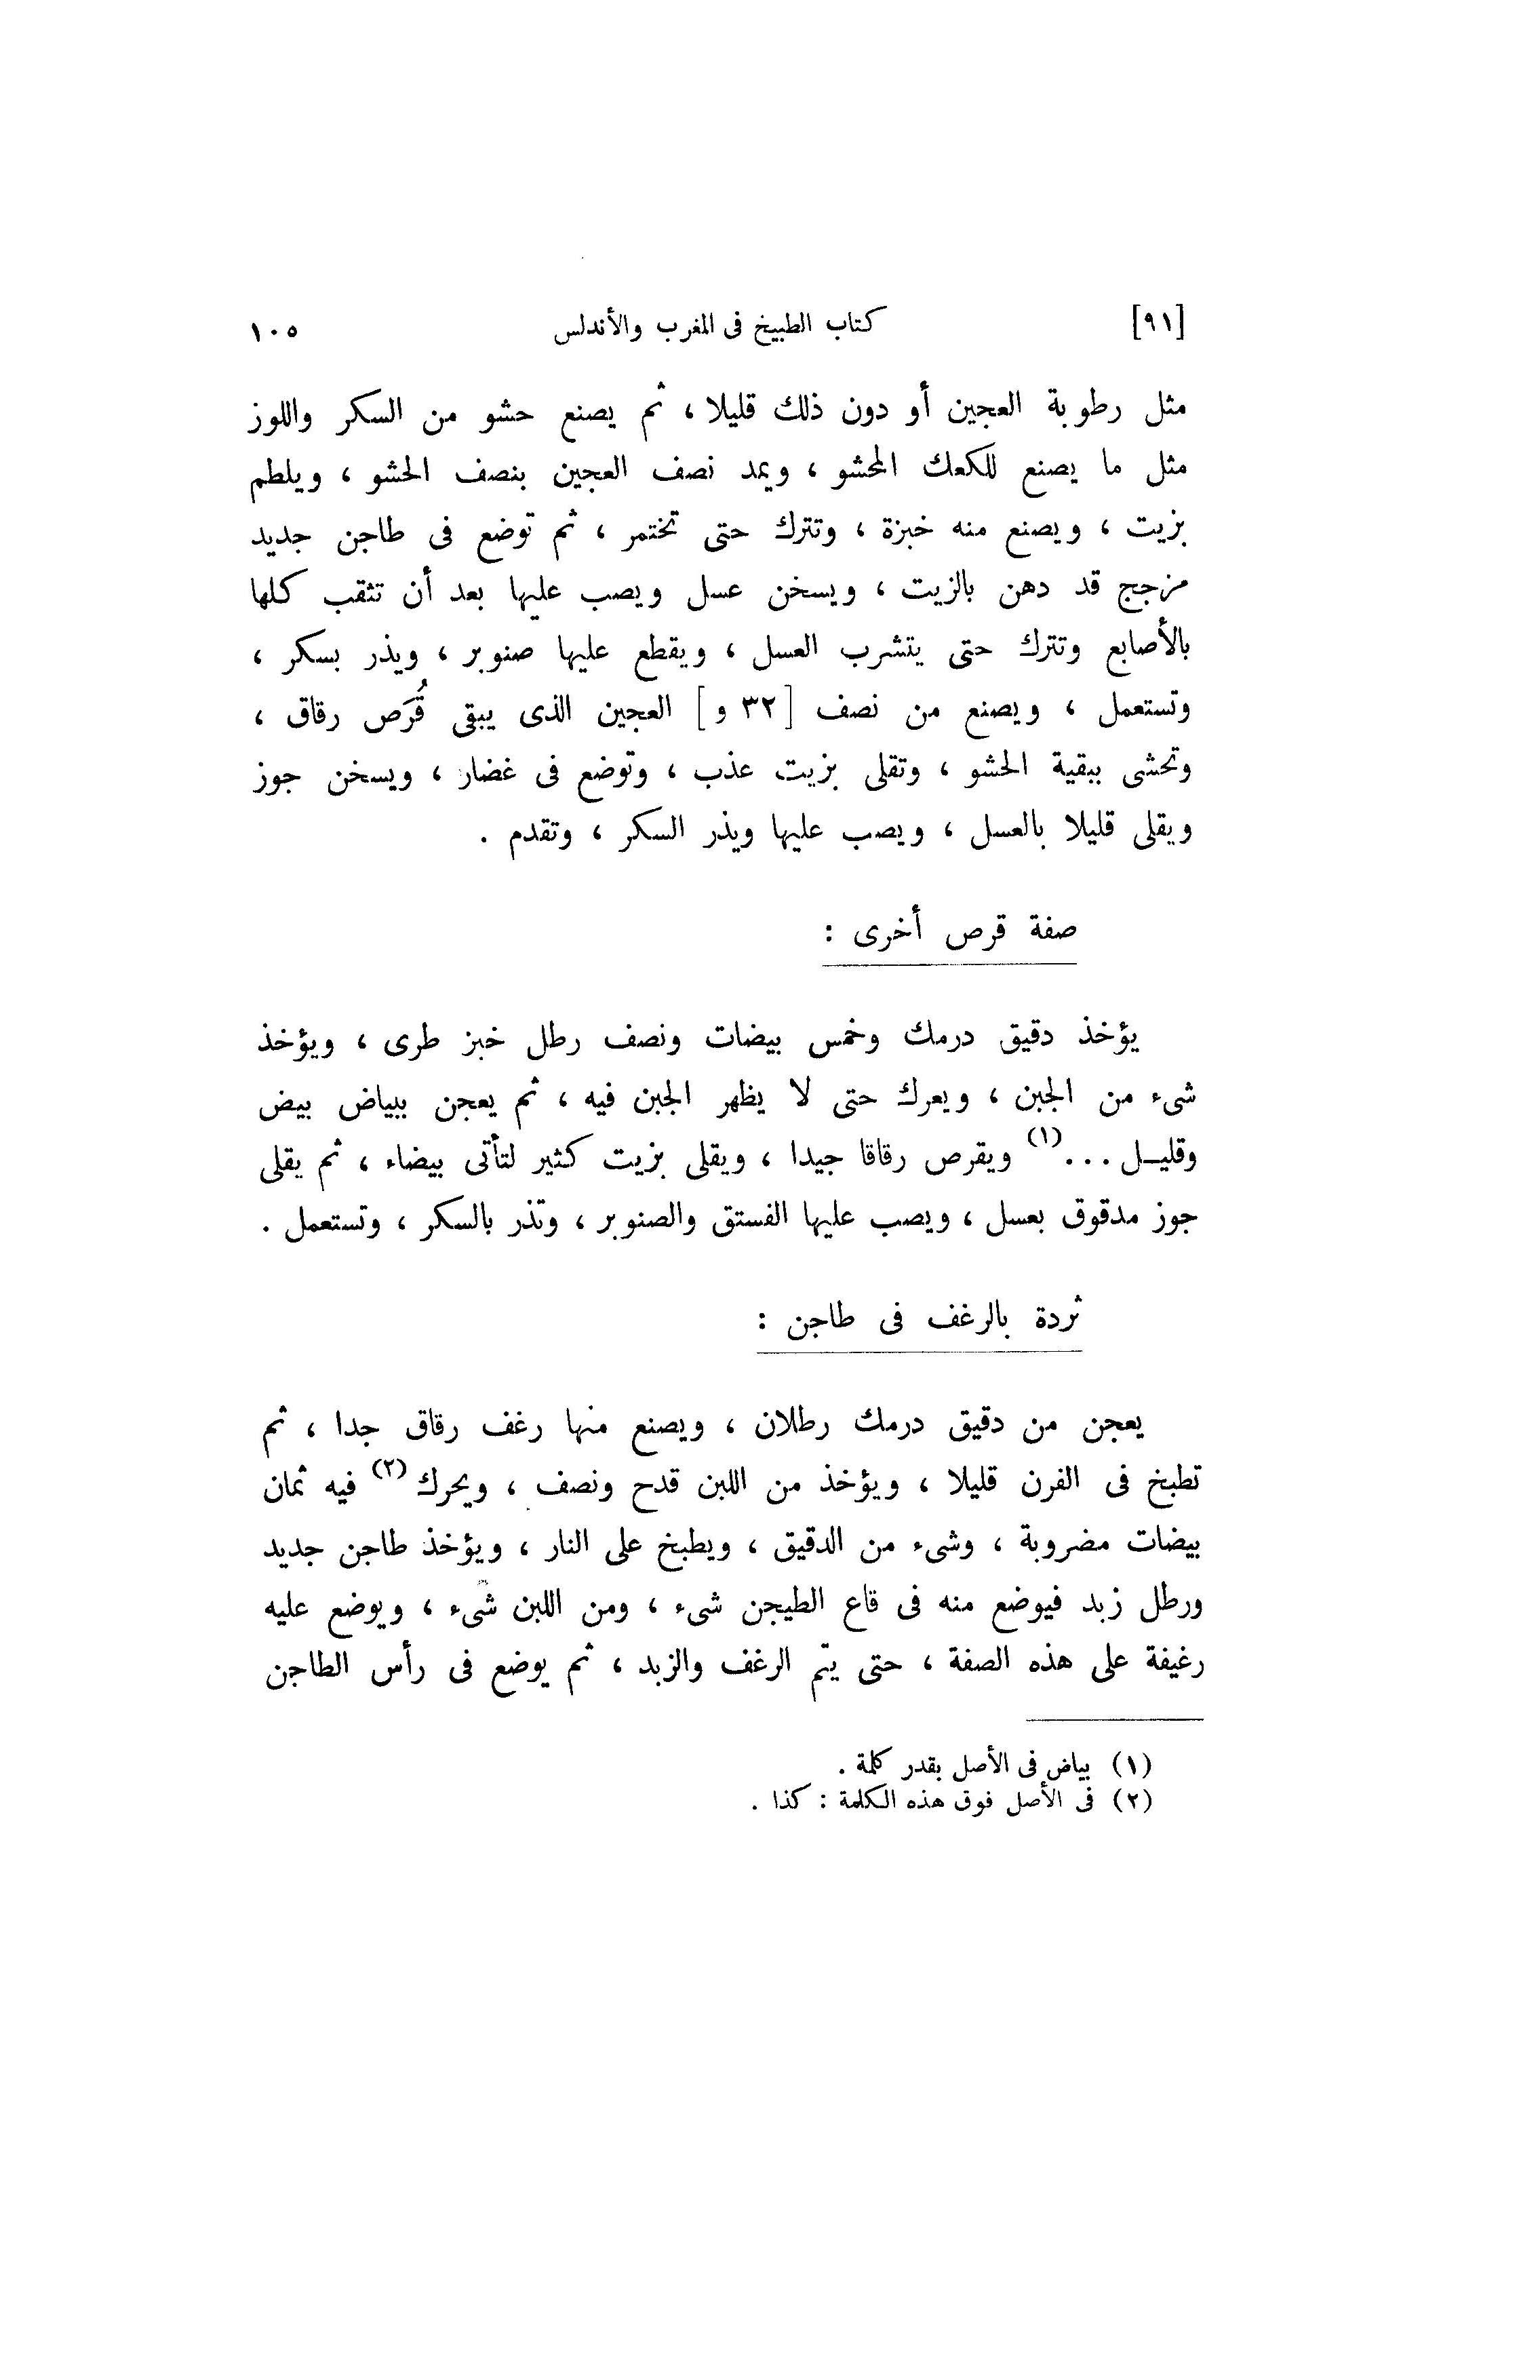 [٩١] كتاب الطبيخ فى المغرب والأندلس ١٠٥
مثل رطوبة العجين أو دون ذلك قليلا ، ثم يصنع حشو من السكر واللوز
مثل ما يصنع للكعك المحشو ، ويمد نصف العجين بنصف الحشو ، ويلطم
بزيت ، ويصنع منه خبزة ، وتترك حتى تختمر ، ثم توضع فى طاجن جديد
مزجج قد دهن بالزيت ، ويسخن عسل ويصب عليها بعد أن تثقب كلها
بالأصابع وتترك حتى يتشرب العسل ، ويقطع عليها صنوبر ، ويذر بسكر ،
وتستعمل ، ويصنع من نصف [٣٢ و] العجين الذى يبقى قُرَص رقاق ،
وتحشى ببقية الحشو ، وتقلى بزيت عذب ، وتوضع فى غضار ، ويسخن جوز
ويقلى قليلا بالعسل ، ويصب عليها ويذر السكر ، وتقدم .
صفة قرص أخرى :
يؤخذ دقيق درمك وخمس بيضات ونصف رطل خبز طرى ، ويؤخذ
شىء من الجبن ، ويعرك حتى لا يظهر الجبن فيه ، ثم يعجن ببياض بيض
وقليـل ...(١) ويقرص رقاقا جيدا ، ويقلى بزيت كثير لتأتى بيضاء ، ثم يقلى
جوز مدقوق بعسل ، ويصب عليها الفستق والصنوبر ، وتذر بالسكر ، وتستعمل .
ثردة بالرغف فى طاجن :
يعجن من دقيق درمك رطلان ، ويصنع منها رغف رقاق جدا ، ثم
تطبخ فى الفرن قليلا ، ويؤخذ من اللبن قدح ونصف ، ويحرك(٢) فيه ثمان
بيضات مضروبة ، وشىء من الدقيق ، ويطبخ على النار ، ويؤخذ طاجن جديد
ورطل زبد فيوضع منه فى قاع الطيجن شىء ، ومن اللبن شىء ، ويوضع عليه
رغيفة على هذه الصفة ، حتى يتم الرغف والزبد ، ثم يوضع فى رأس الطاجن
(١) بياض فى الأصل بقدر كلمة .
(٢) فى الأصل فوق هذه الكلمة : كذا .